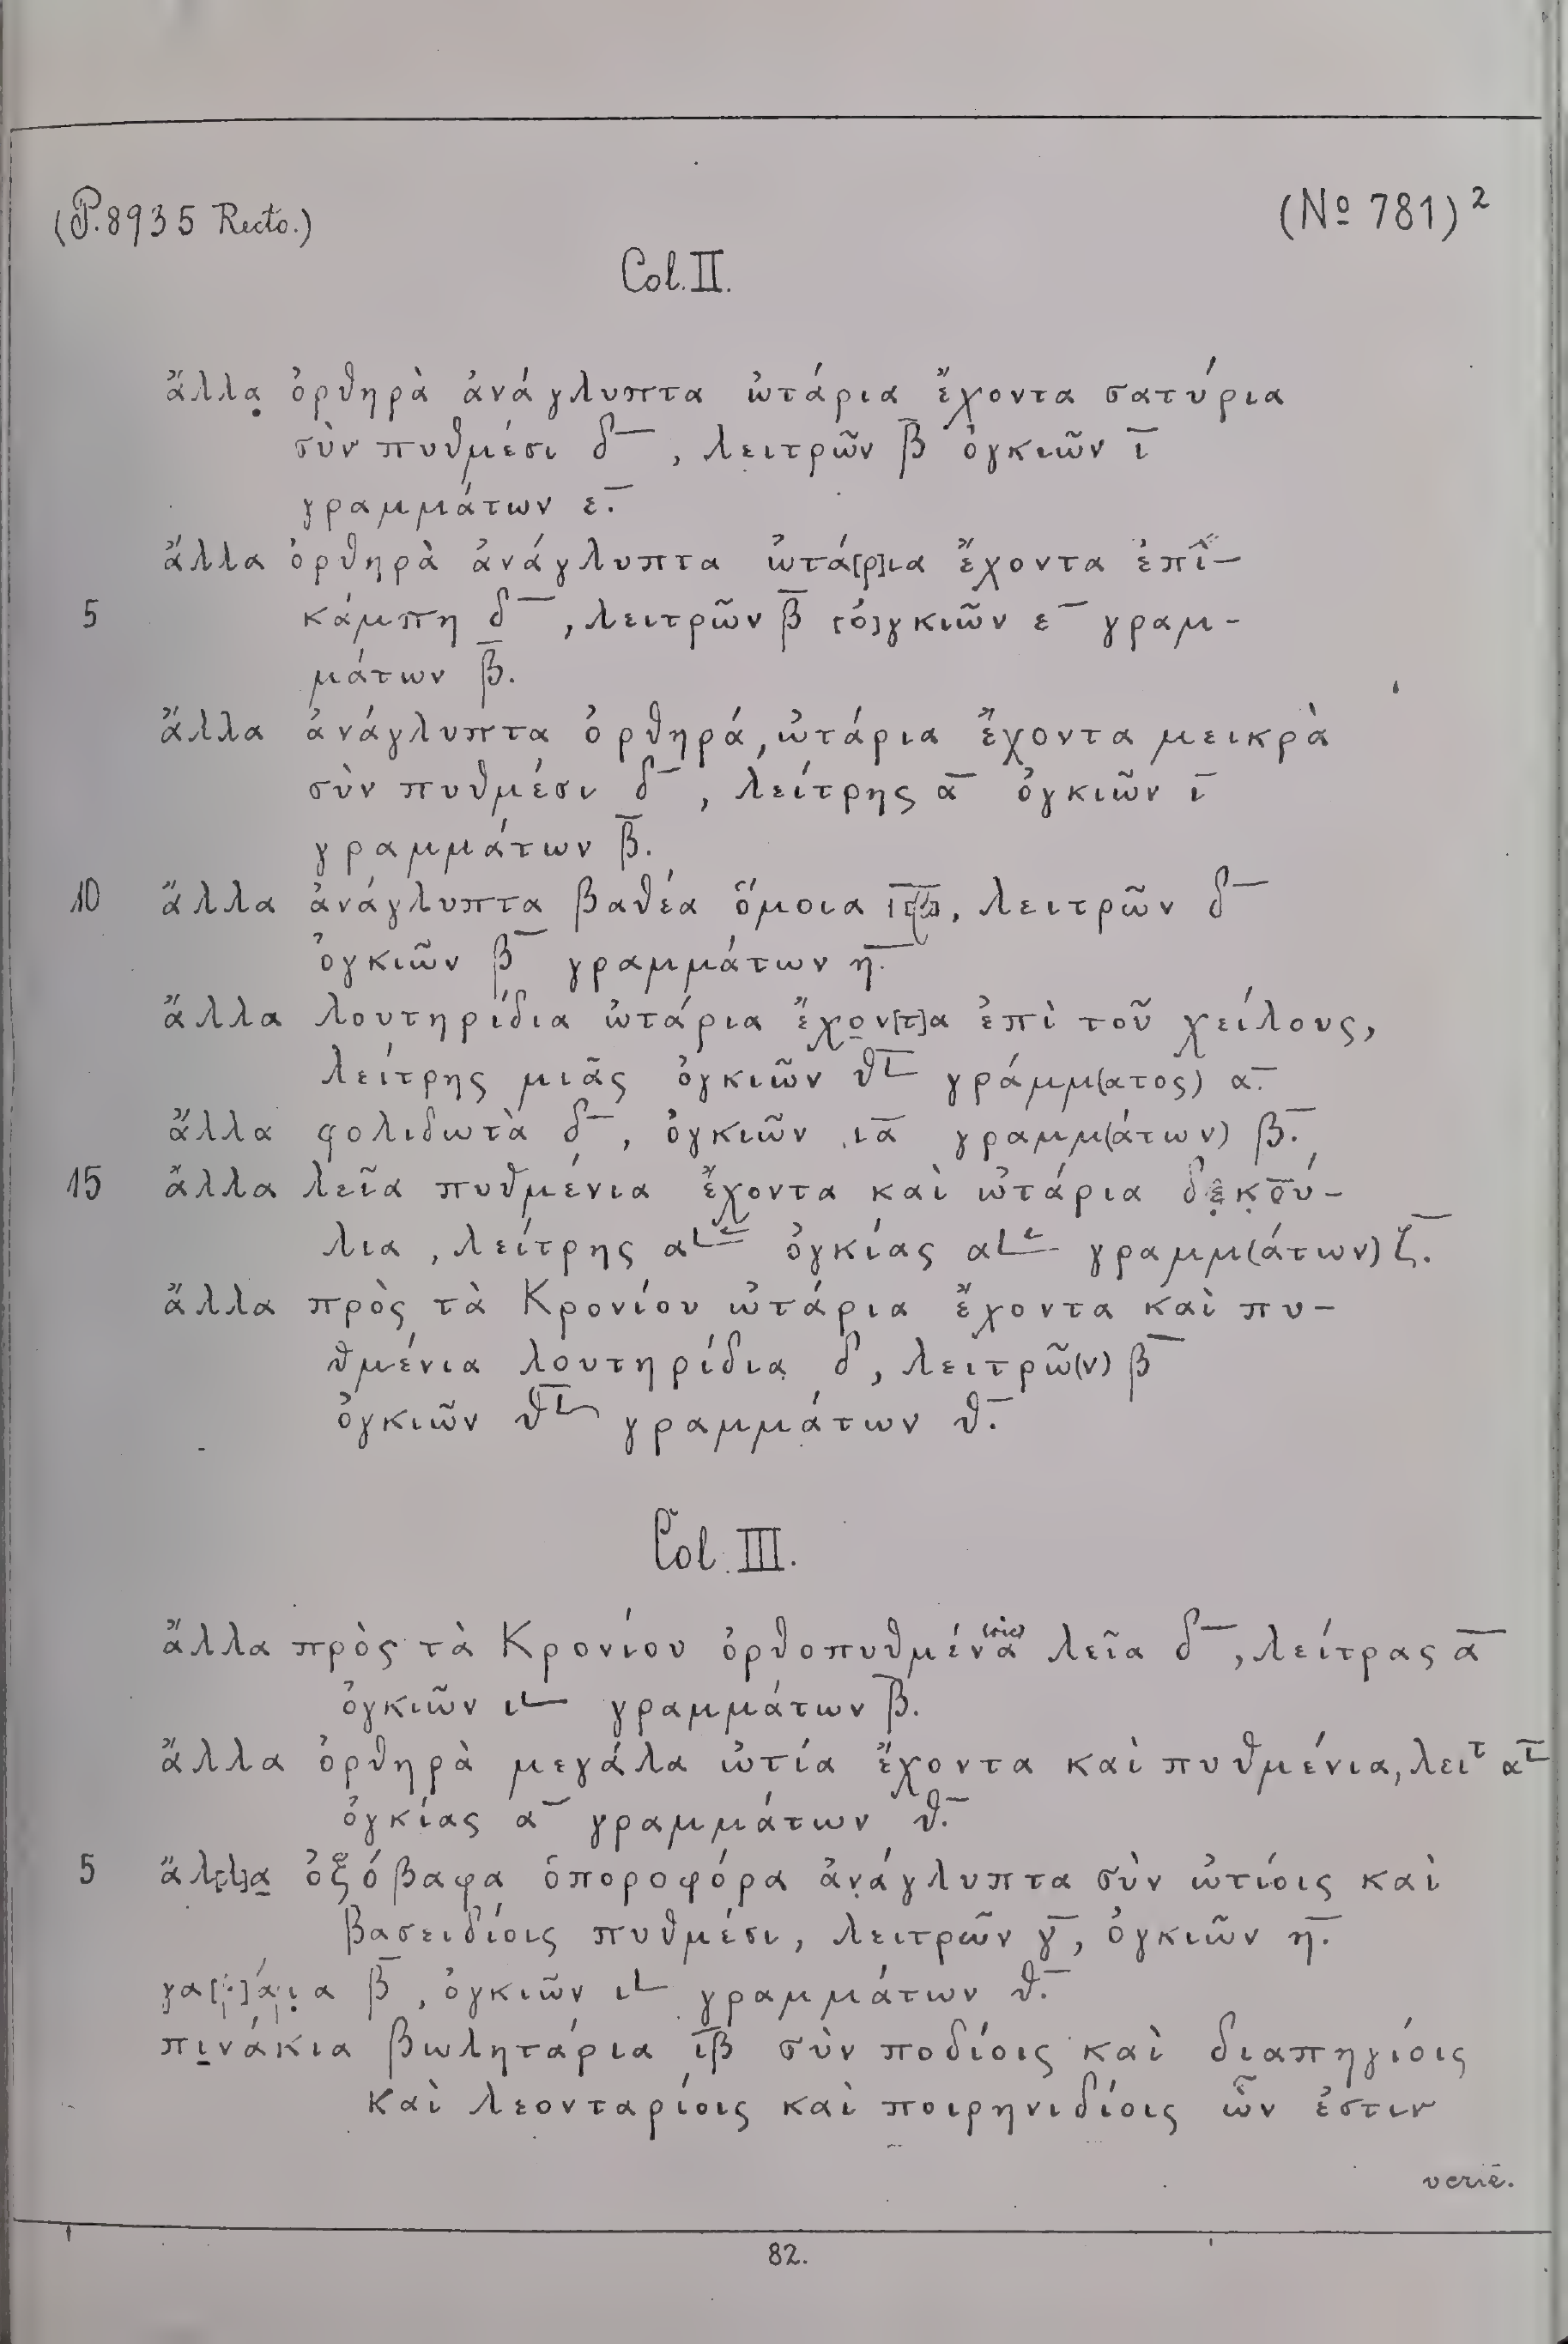 (P. 8935 Recto.)
(Nº 781)²
Col. II.
ἄλλα̣ ὀρθηρὰ ἀνάγλυπτα ὠτάρια ἔχοντα σατύρια
σὺν πυθμέσι δ̅, λειτρῶν β̅ ὀγκιῶν ι̅
γραμμάτων ε̅.
ἄλλα ὀρθηρὰ ἀνάγλυπτα ὠτά[ρ]ια ἔχοντα ἐπι-
5 κάμπη δ̅, λειτρῶν β̅ [ὀ]γκιῶν ε̅ γραμ-
μάτων β̅.
ἄλλα ἀνάγλυπτα ὀρθηρά, ὠτάρια ἔχοντα μεικρὰ
σὺν πυθμέσι δ̅, λείτρης α̅ ὀγκιῶν ι̅
γραμμάτων β̅.
10 ἄλλα ἀνάγλυπτα βαθέα ὅμοια, λειτρῶν δ̅
ὀγκιῶν β̅ γραμμάτων η̅.
ἄλλα λουτηρίδια ὠτάρια ἔχο̣ν[τ]α ἐπὶ τοῦ χείλους,
λείτρης μιᾶς ὀγκιῶν θ̅𐅵 γράμμ(ατος) α̅.
ἄλλα φολιδωτὰ δ̅, ὀγκιῶν ια̅ γραμμ(άτων) β̅.
15 ἄλλα λεῖα πυθμένια ἔχοντα καὶ ὠτάρια δε̣κ̣ού-
λια, λείτρης α𐅵 ὀγκίας α𐅵 γραμμ(άτων) ζ̅.
ἄλλα πρὸς τὰ Κρονίου ὠτάρια ἔχοντα καὶ πυ-
θμένια λουτηρίδια̣ δ, λειτρῶ(ν) β̅
ὀγκιῶν θ̅𐅵 γραμμάτων θ̅.
Col. III.
ἄλλα πρὸς τὰ Κρονίου ὀρθοπυθμένα (sic) λεῖα δ̅, λείτρας α̅
ὀγκιῶν ι𐅵 γραμμάτων β̅.
ἄλλα ὀρθηρὰ μεγάλα ὠτία ἔχοντα καὶ πυθμένια, λειτ α̅𐅵
ὀγκίας α̅ γραμμάτων θ̅.
5 ἄλ[λ]α̣ ὀξόβαφα ὁποροφόρα ἀν̣άγλυπτα σὺν ὠτίοις καὶ
βασειδίοις πυθμέσι, λειτρῶν γ̅, ὀγκιῶν η̅.
β̅, ὀγκιῶν ι𐅵 γραμμάτων θ̅.
πι̣νάκια βωλητάρια ι̅β̅ σὺν ποδίοις καὶ διαπηγίοις
καὶ λεονταρίοις καὶ ποιρηνιδίοις ὧν ἐστιν
82.